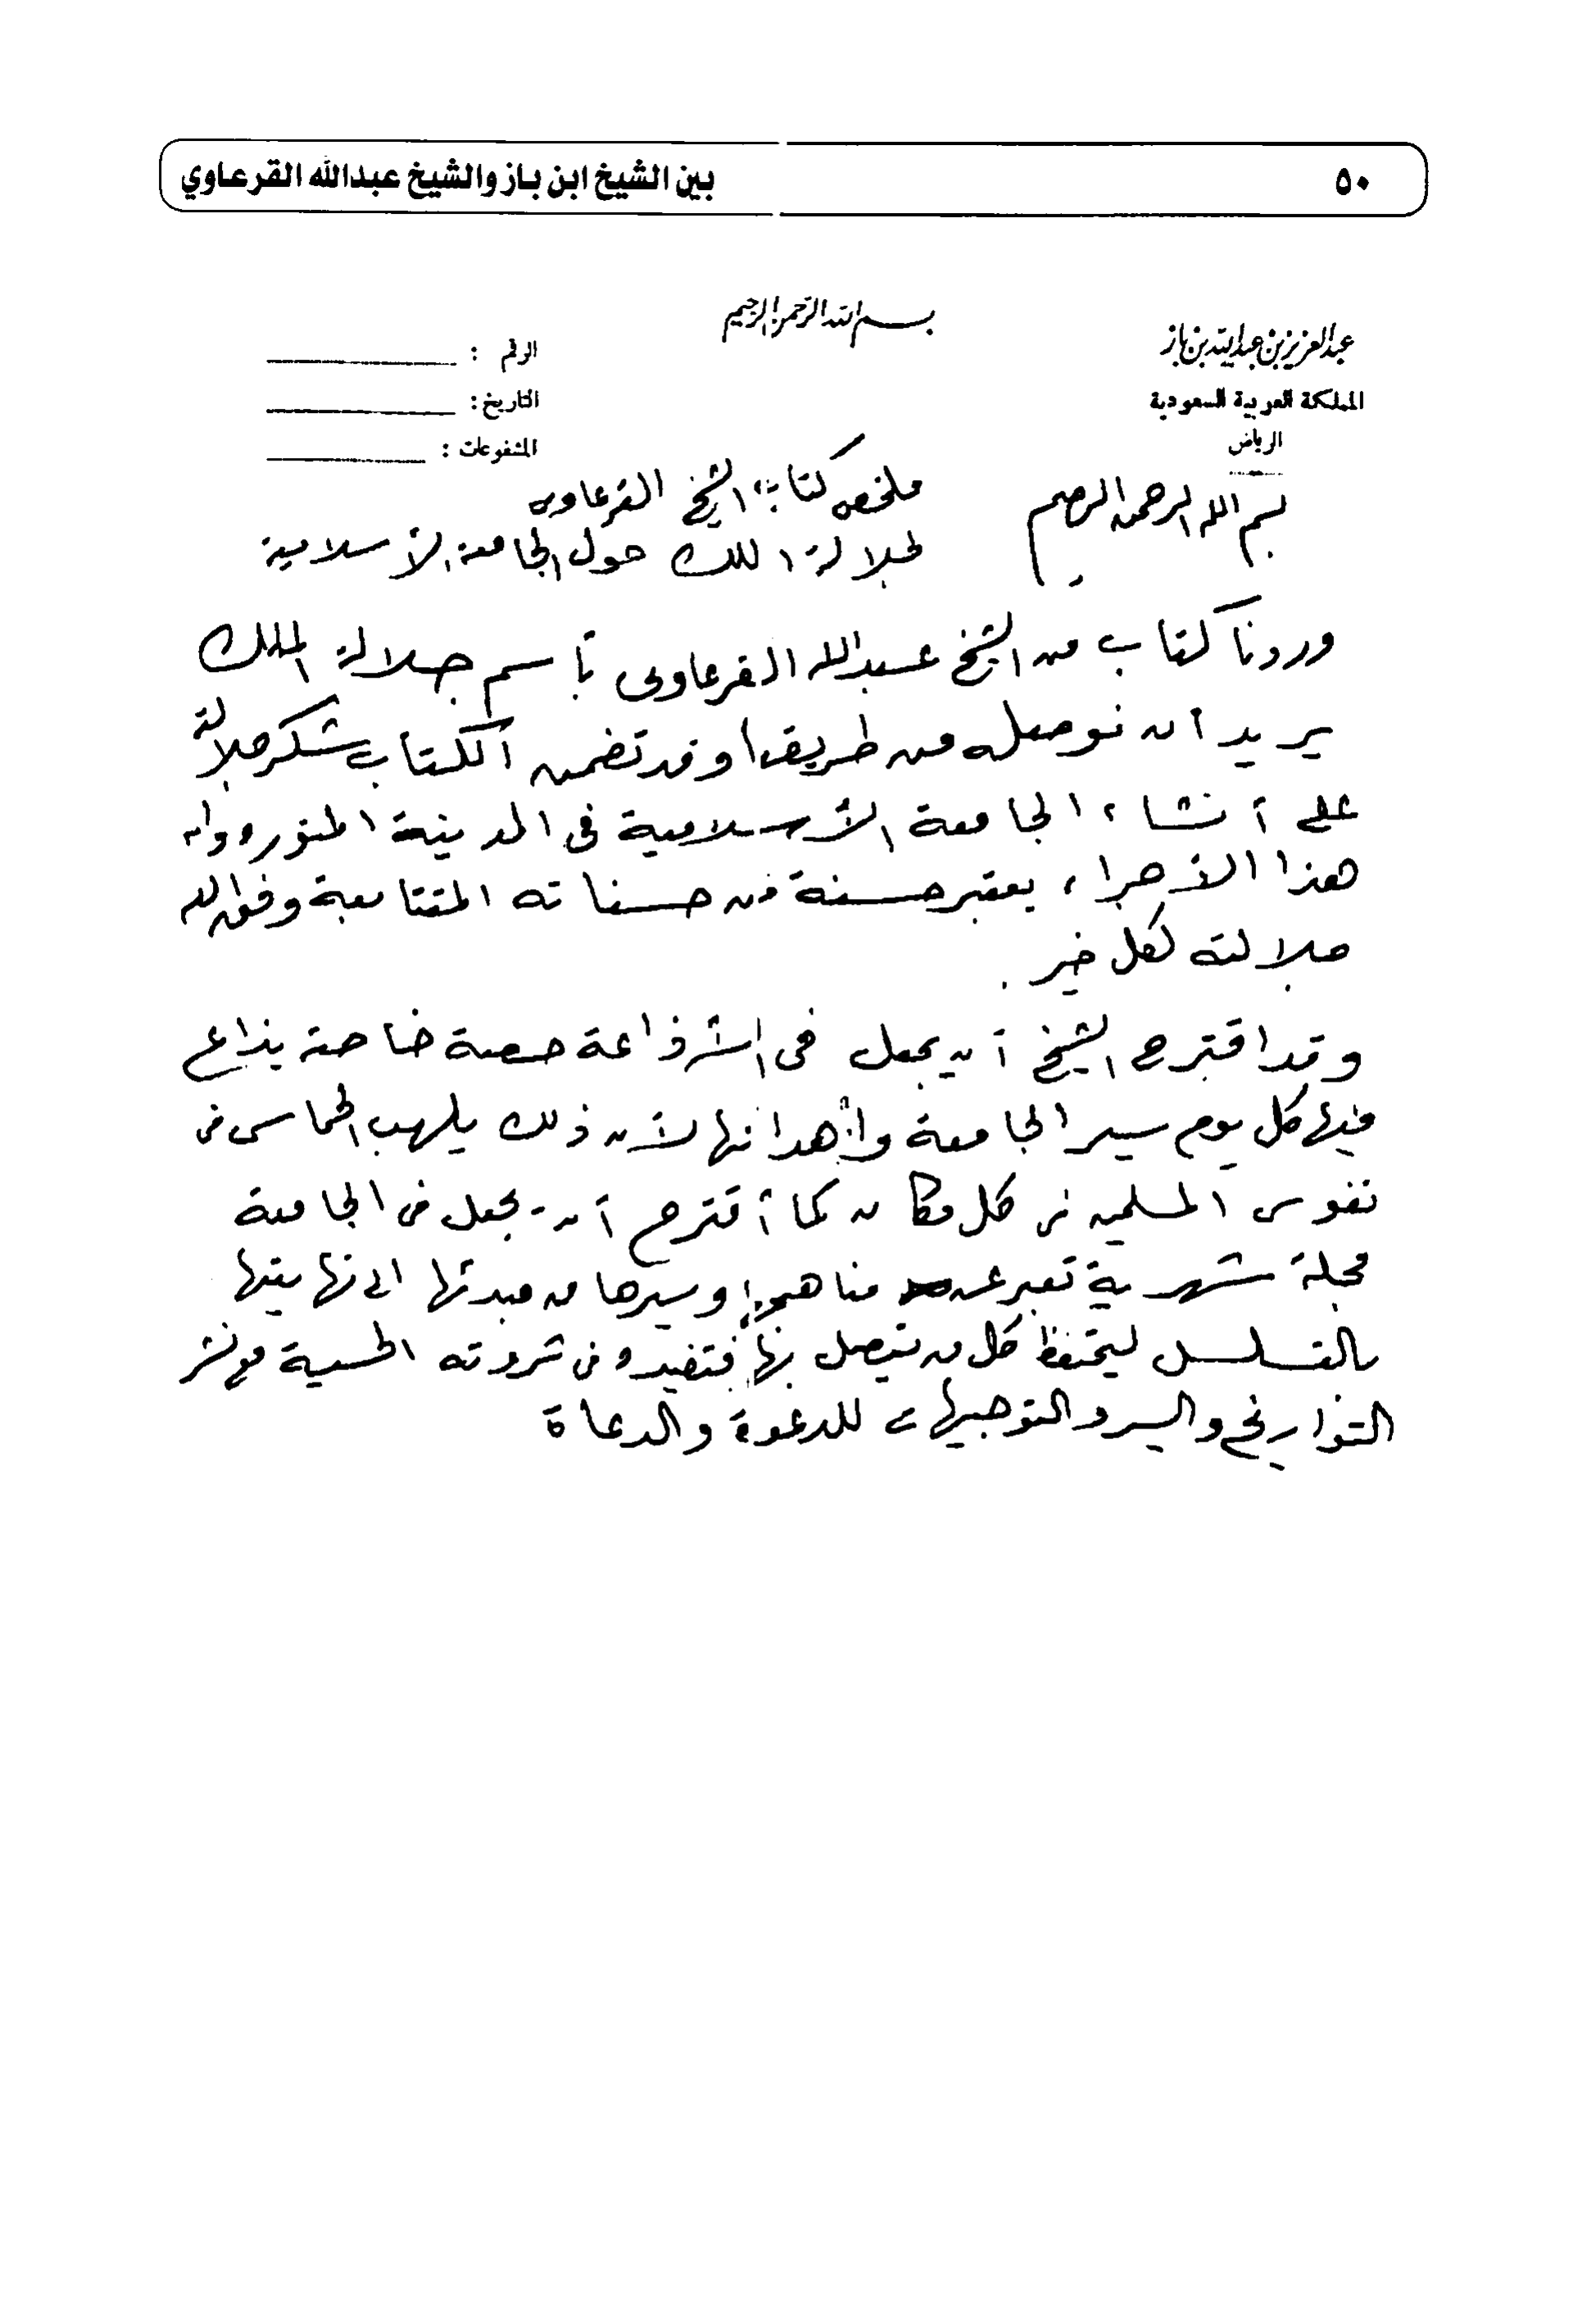 ٥٠
بين الشيخ ابن باز والشيخ عبدالله القرعاوي
بسم الله الرحمن الرحيم
عبد العزيز بن عبد الله بن باز
المملكة العربية السعودية
الرياض
الرقم :
التاريخ :
المشفوعات :
بسم الله الرحمن الرحيم
ملخص كتاب الشيخ القرعاوي
لجلالة الملك حول الجامعة الأسلامية
وردنا كتاب من الشيخ عبدالله القرعاوى بأسم جلالة الملك
يريد أن نوصله من طريقنا وقد تضمن الكتاب شكر جلالة
على أنشاء الجامعة الأسلامية فى المدينة المنوره وان
هذا الأجراء يعتبر حسنة من حسناته المتتابعة وفق الله
جلالته لكل خير .
وقد اقترح الشيخ أن يجعل فى الأذاعة حصة خاصة يذاع
فيها كل يوم سير الجامعة وأهدافها لأن ذلك يلهب الحماس فى
نفوس المسلمين فى كل مكان كما أقترح أن يجعل فى الجامعة
مجلة شهرية تعبر عن مناهجها وسيرها من مبدئها الى نهايتها
بالتسلسل ليحتفظ كل من تتصل بها فتفيد فى ثروته الحسية مع نشر
التواريخ والسير والتوجيهات للدعوة والدعاة